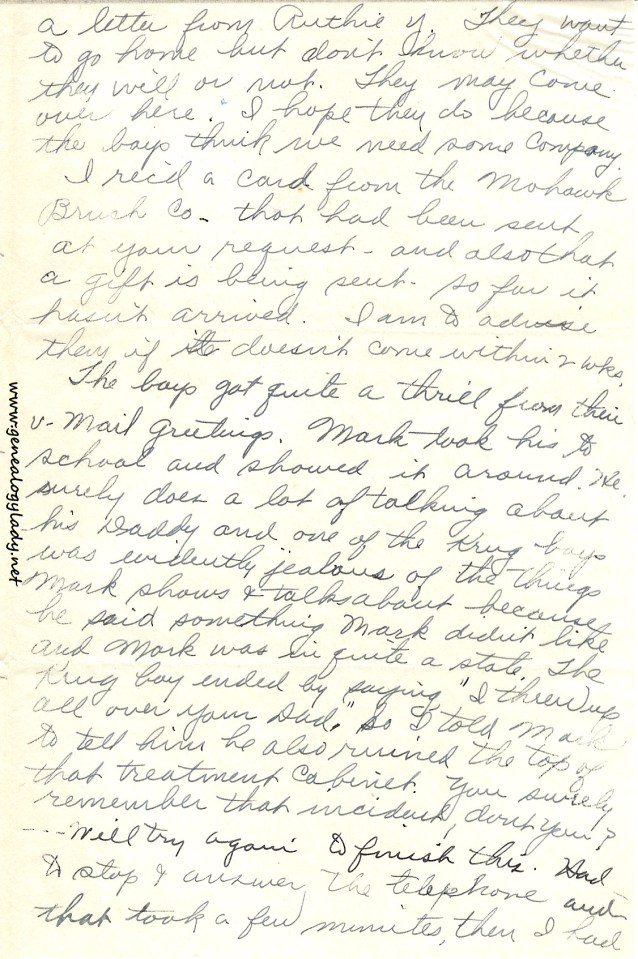 a letter from Ruthie y. They want
to go home but don't know whether
they will or not. They may come
over here. I hope they do because
the boys think we need some company.
I rec'd a card from the Mohawk
Brush Co - that had been sent
at your request - and also that
a gift is being sent - so far it
hasn't arrived. I am to advise
them if it doesn't come within 2 wks.
The boys got quite a thrill from their
V-Mail Greetings. Mark took his to
school and showed it around. He
surely does a lot of talking about
his Daddy and one of the Krug boys
was evidently jealous of the things
Mark shows & talks about because
he said something Mark didn't like
and Mark was in quite a state. The
Krug boy ended by saying "I threw up
all over your Dad," so I told Mark
to tell him he also ruined the top of
that treatment cabinet. You surely
remember that incident, don't you?
---- Will try again to finish this. Had
to stop & answer the telephone and
that took a few minutes, then I had
www.genealogylady.net